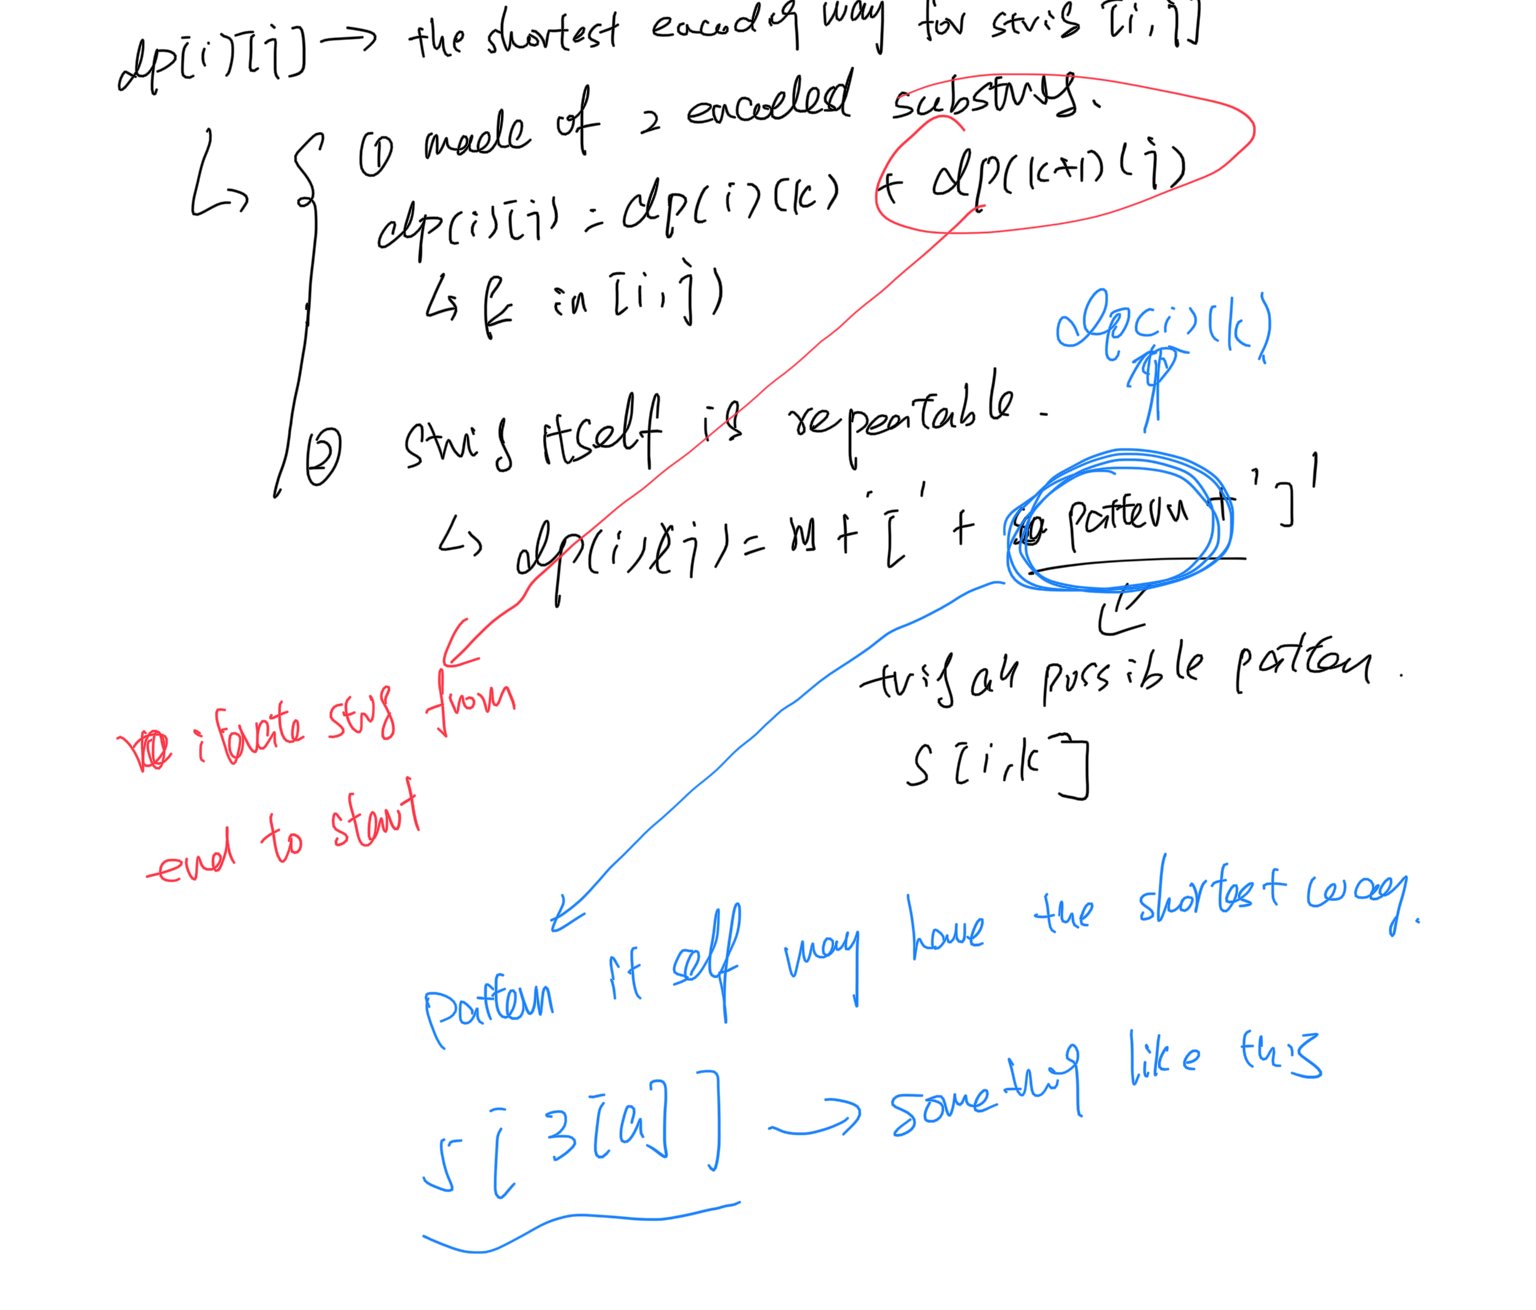 dp[i][j] → the shortest encoding way for string [i,j]
① made of 2 encoded substrings.
dp(i)[j] = dp(i)(k) + dp(k+1)(j)
↳ k in [i,j)
dp(i)(k)
② string itself is repeatable.
↳ dp(i)(j) = n + '[' + pattern + ']'
trying all possible pattern.
s[i,k]
iterate string from
end to start
pattern itself may have the shortest way.
5[3[a]] → something like this